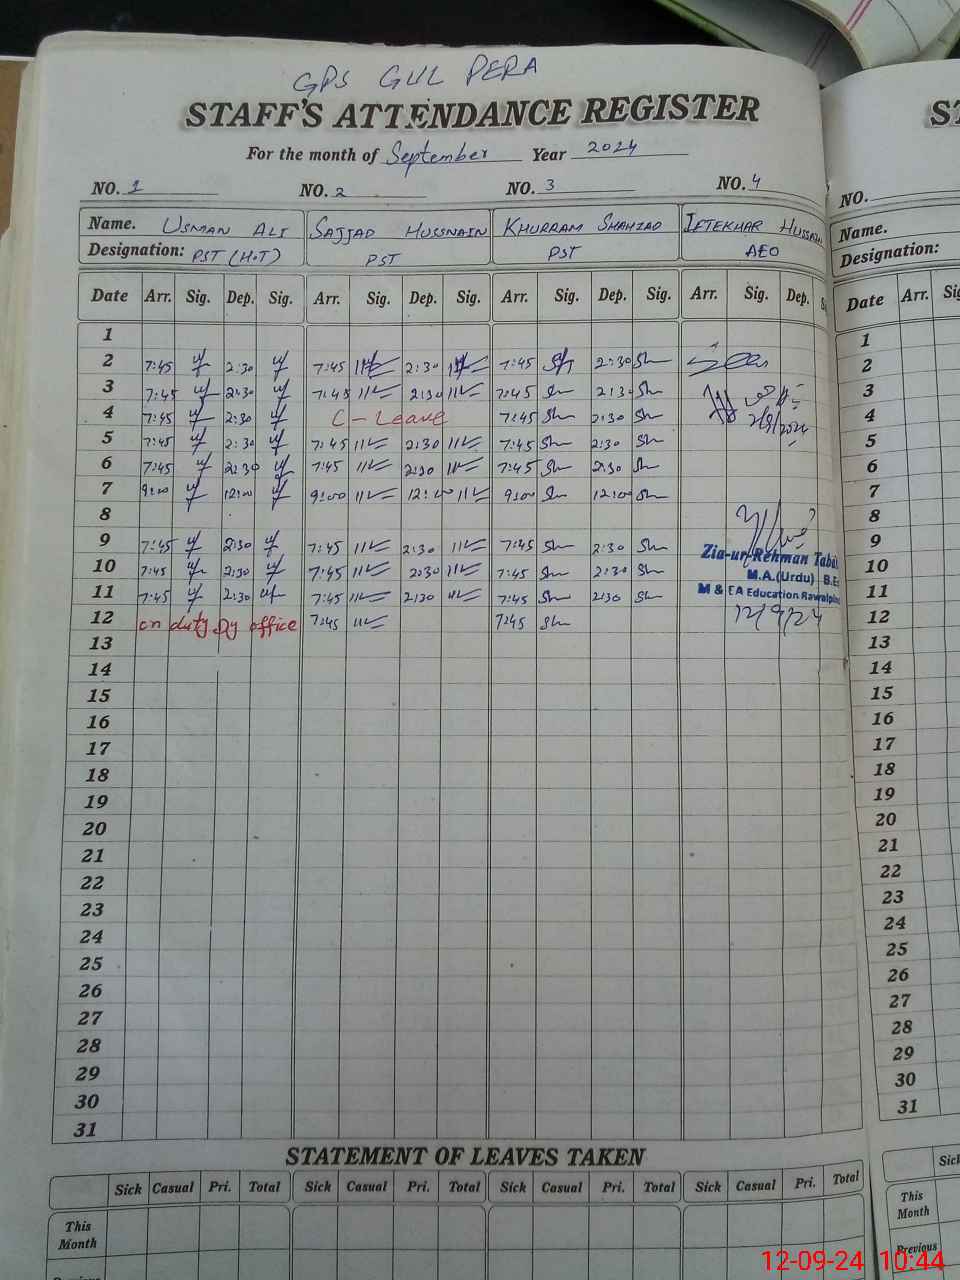 GPS GUL PERA
STAFF'S ATTENDANCE REGISTER
For the month of September Year 2024
NO. 1 NO. 2 NO. 3 NO. 4
Name. USMAN ALI SAJJAD HUSSNAIN KHURRAM SHAHZAD IFTEKHAR HUSSAIN
Designation: PST (H.T) PST PST AEO
Date Arr. Sig. Dep. Sig. Arr. Sig. Dep. Sig. Arr. Sig. Dep. Sig. Arr. Sig. Dep.
1
2 7:45 2:30 7:45 2:30 7:45 2:30
3 7:45 2:30 7:45 2:30 7:45 2:30
4 7:45 2:30 C-Leave 7:45 2:30 2/9/2024
5 7:45 2:30 7:45 2:30 7:45 2:30
6 7:45 2:30 7:45 2:30 7:45 2:30
7 9:00 12:00 9:00 12:00 9:00 12:00
8
9 7:45 2:30 7:45 2:30 7:45 2:30
Zia-ur-Rehman
10 7:45 2:30 7:45 2:30 7:45 2:30
M.A.(Urdu)
11 7:45 2:30 7:45 2:30 7:45 2:30
M & EA Education
12 on duty Dy office 7:45 7:45 12/9/24
13
14
15
16
17
18
19
20
21
22
23
24
25
26
27
28
29
30
31
STATEMENT OF LEAVES TAKEN
Sick Casual Pri. Total Sick Casual Pri. Total Sick Casual Pri. Total Sick Casual Pri. Total
This
Month
NO.
Name.
Designation:
Date Arr.
1
2
3
4
5
6
7
8
9
10
11
12
13
14
15
16
17
18
19
20
21
22
23
24
25
26
27
28
29
30
31
Sick
This
Month
Previous
12-09-24 10:44